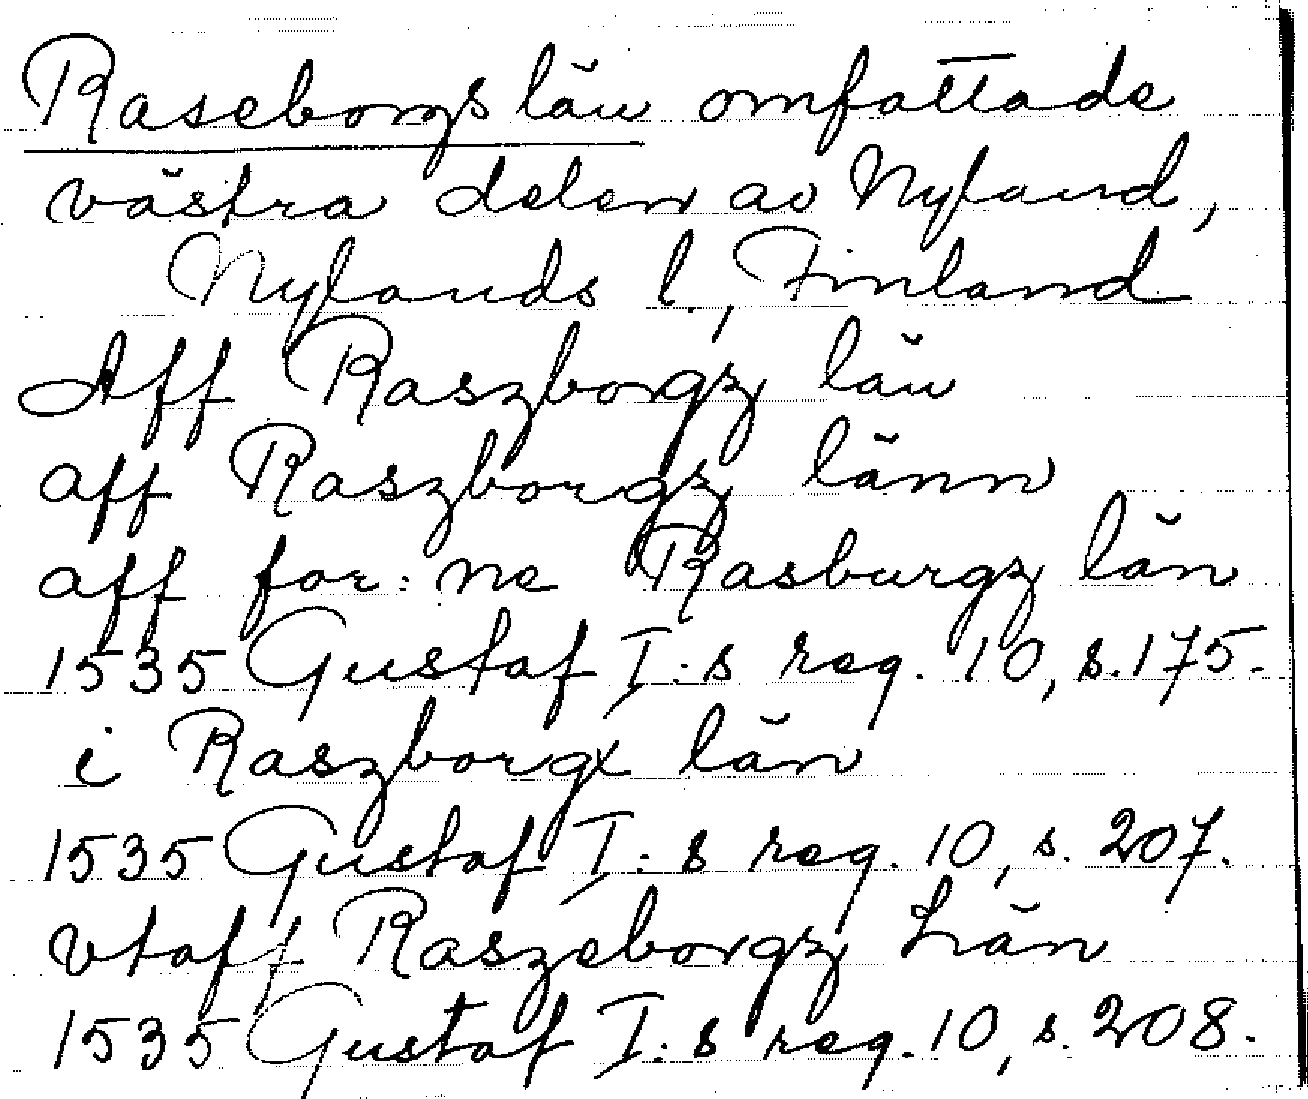 Raseborgs län omfattade
västra delen av Nyland,
Nylands l., Finland
Aff Raszborgz län
aff Raszborgz länn
aff for: ne Rasburgz län
1535 Gustaf I:s reg. 10, s. 175.
i Raszborgx län
1535 Gustaf I:s reg. 10, s. 207.
vtaff Raszeborgz Län
1535 Gustaf I:s reg. 10, s. 208.